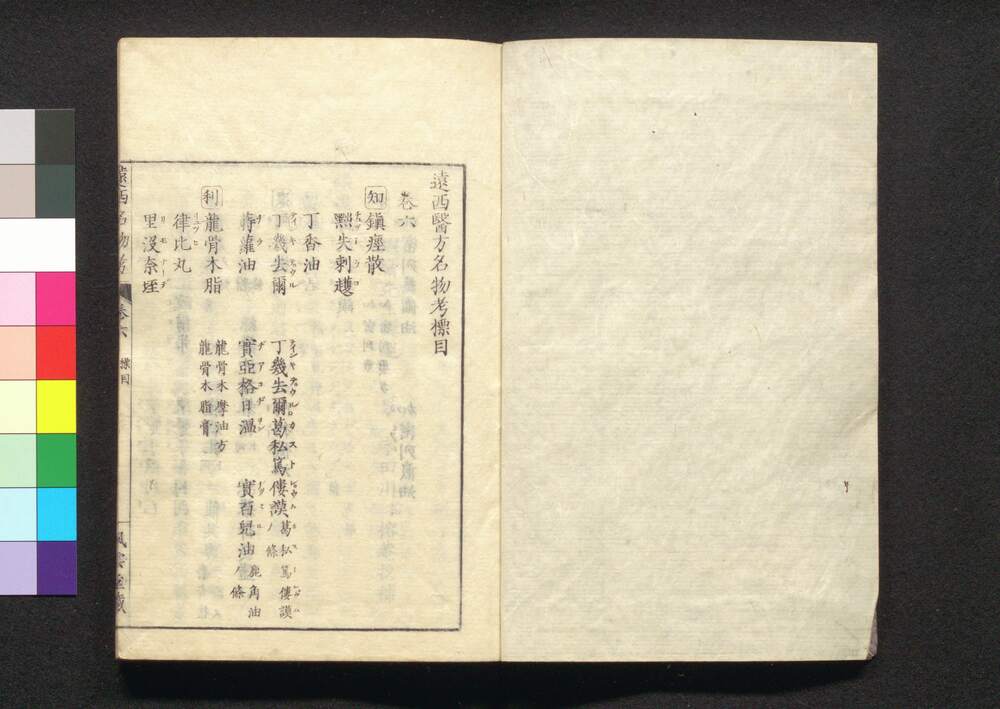 遠西醫方名物考標目
卷六
知 鎭痙散
黙失剌䕶
丁香油
丁幾去爾 丁幾去爾葛私篤僂謨ノ條 葛私篤僂謨
蒔蘿油 實亞格日溫 實百児油 鹿角油ノ條
利 龍骨木脂 龍骨木摩油方
龍骨木脂膏
律比丸
里没奈垤
遠西名物考 卷六 標目
風雲堂藏